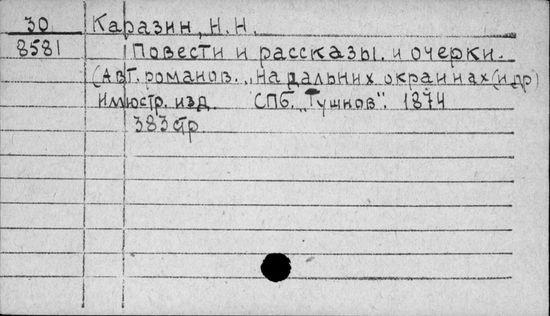 30 Каразин, Н. Н.
8581 Повести и рассказы. и очерки.
(Авт. романов. „На дальних окраинах (и др)
Иллюстр. изд. СПб. „Гушнов". 1874
383 стр